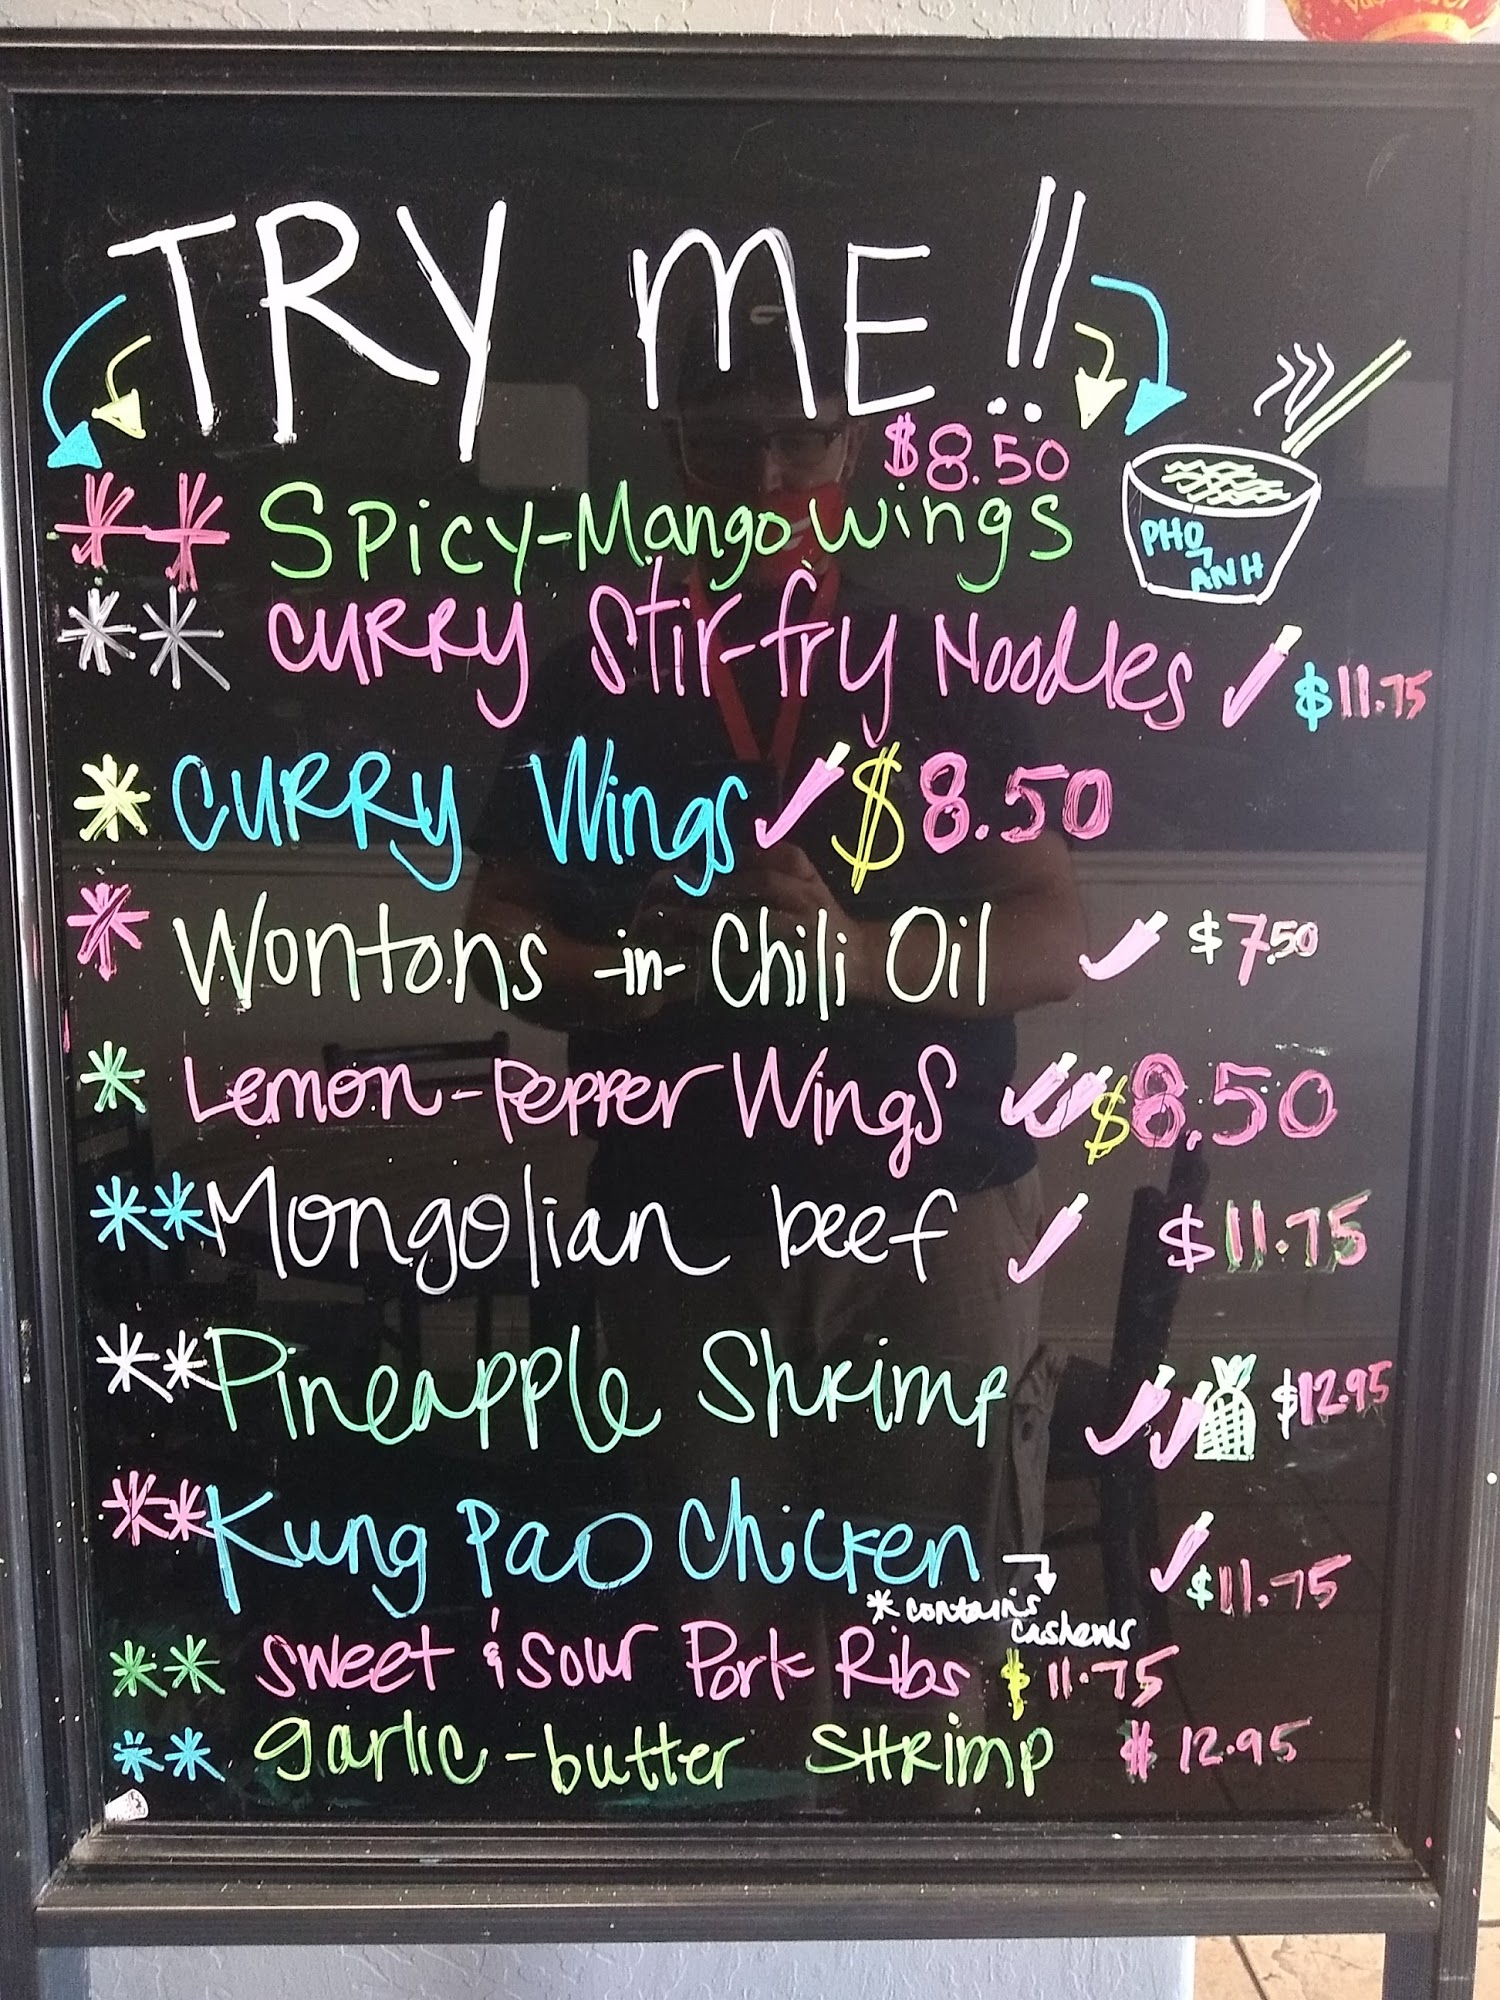 TRY ME!!
$8.50
** Spicy-Mango Wings
PHO
ANH
** CURRY Stir-fry Noodles $11.75
* CURRY Wings $8.50
* Wontons -in- Chili Oil $7.50
* Lemon-Pepper Wings $8.50
** Mongolian beef $11.75
** Pineapple Shrimp $12.95
** Kung Pao Chicken $11.75
* contains
cashews
** Sweet & Sour Pork Ribs $11.75
** garlic-butter SHRimp $12.95